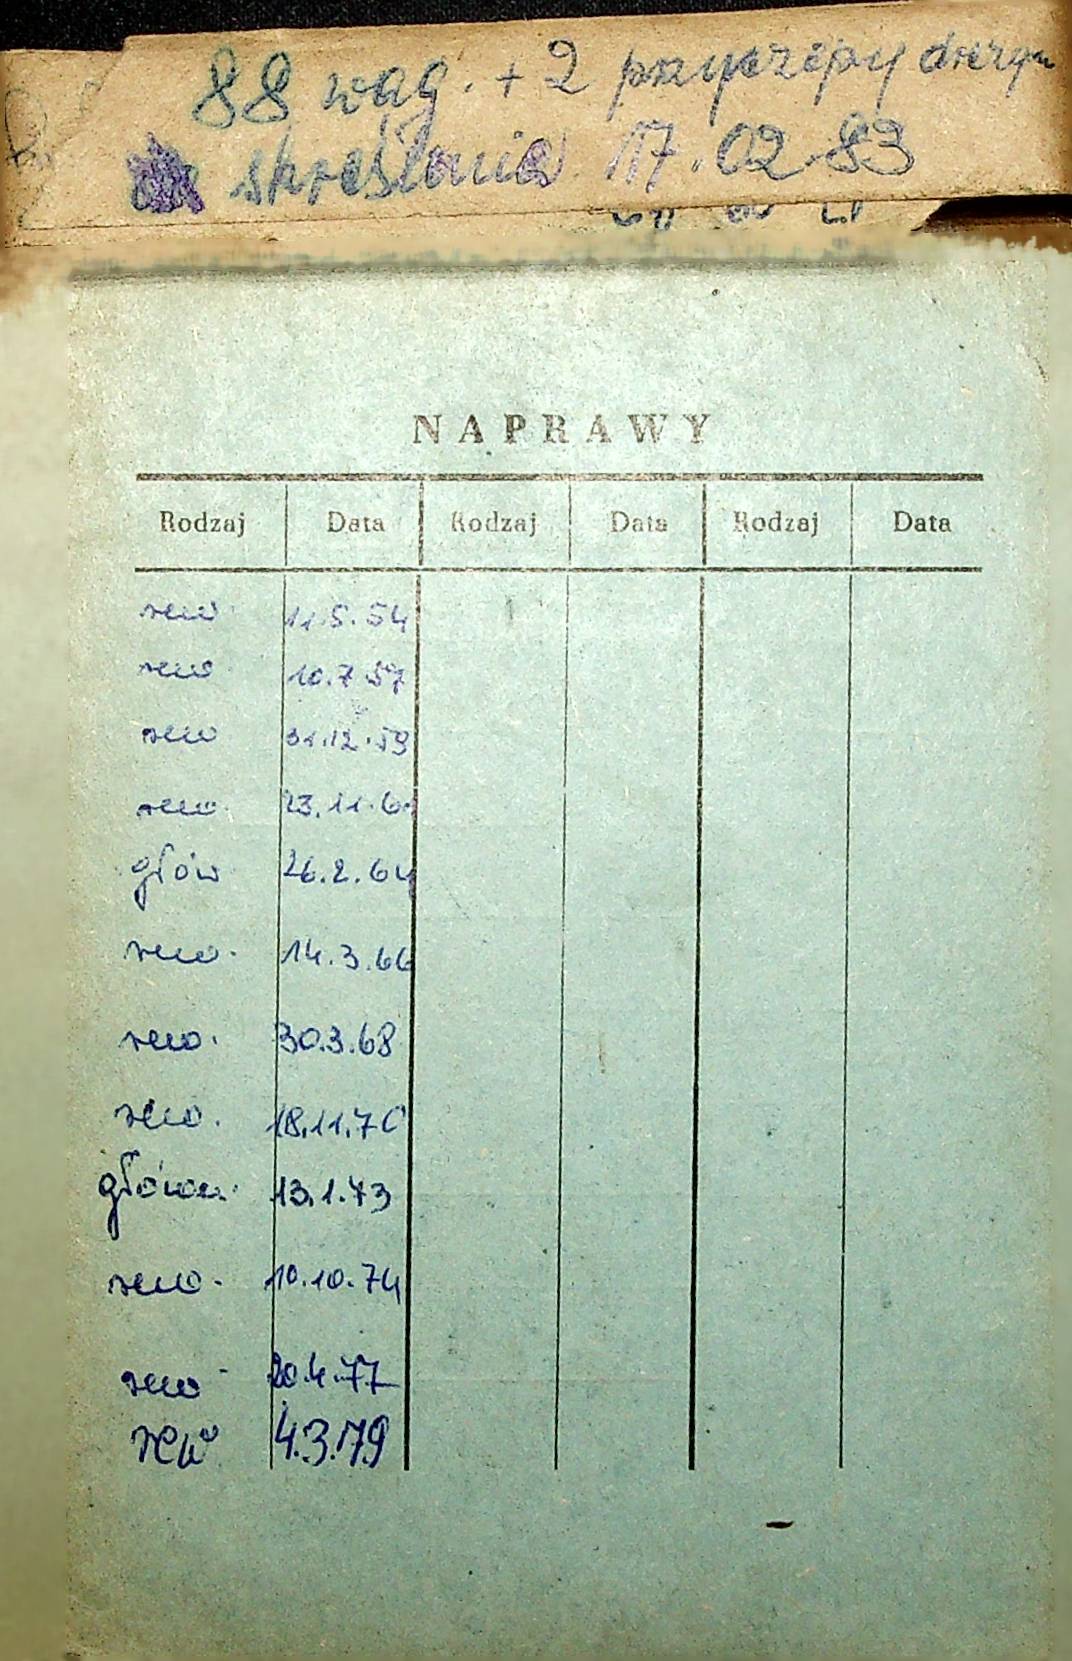 88 wag. + 2 przyczepy drezyn
skreślenia 17.02.83
NAPRAWY
Rodzaj Data Rodzaj Data Rodzaj Data
rew 11.5.54
rew 10.7.57
rew 31.12.59
rew. 23.11.61
głów 26.2.64
rew. 14.3.66
rew. 30.3.68
rew. 18.11.70
główn. 13.1.73
rew. 10.10.74
rew 20.4.77
rew 4.3.79